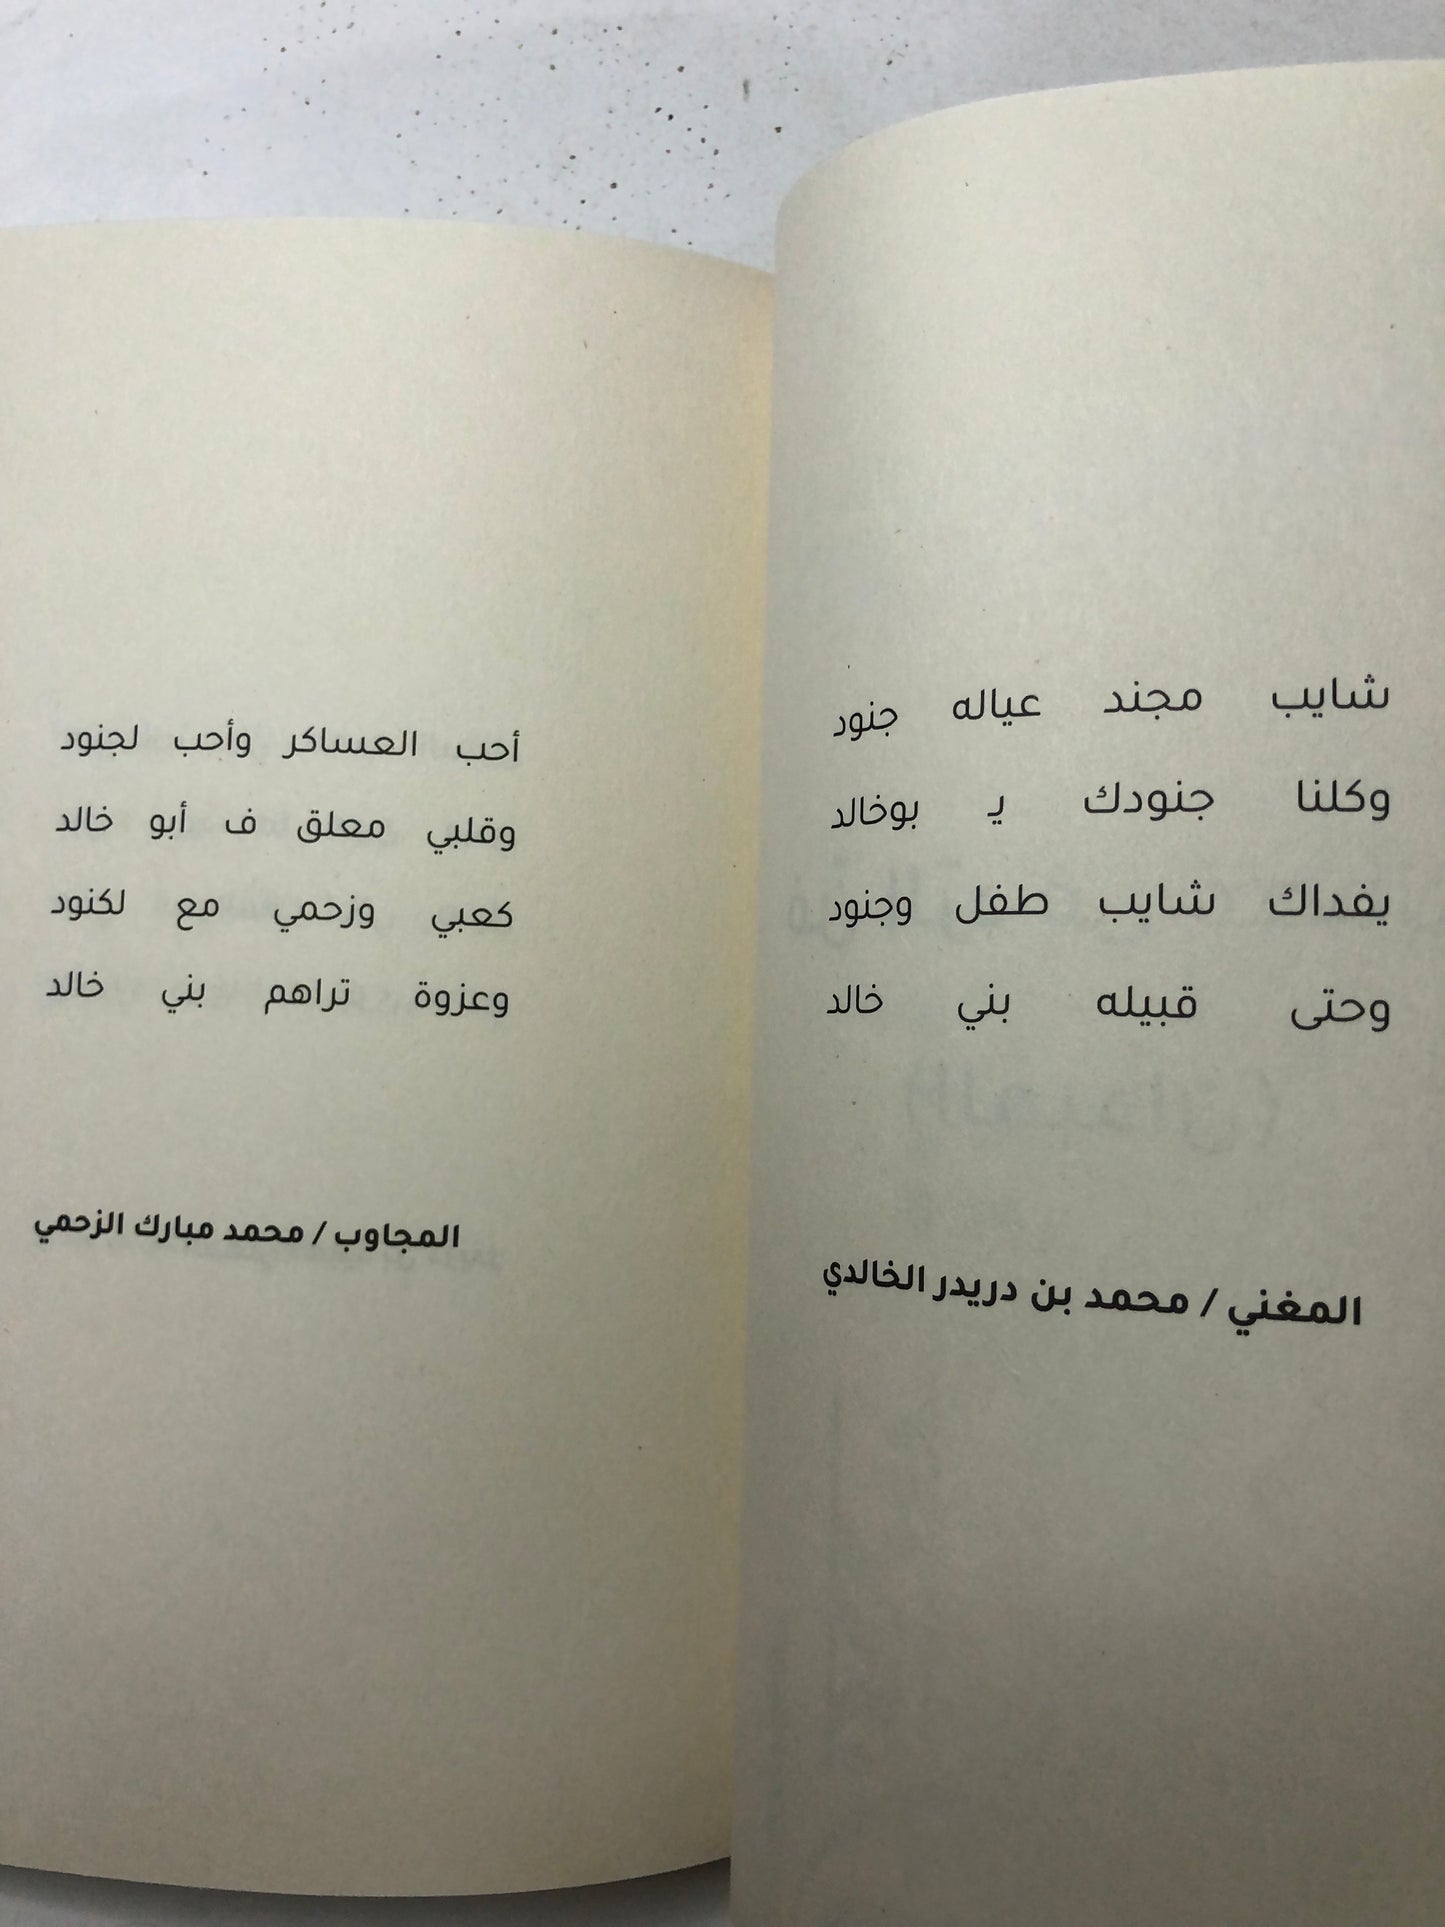 شايب مجند عياله جنود
وكلنا جنودك يـ بوخالد
يفداك شايب طفل وجنود
وحتى قبيله بني خالد
المغني / محمد بن دريدر الخالدي
أحب العساكر وأحب لجنود
وقلبي معلق ف أبو خالد
كعبي وزحمي مع لكنود
وعزوة تراهم بني خالد
المجاوب / محمد مبارك الزحمي